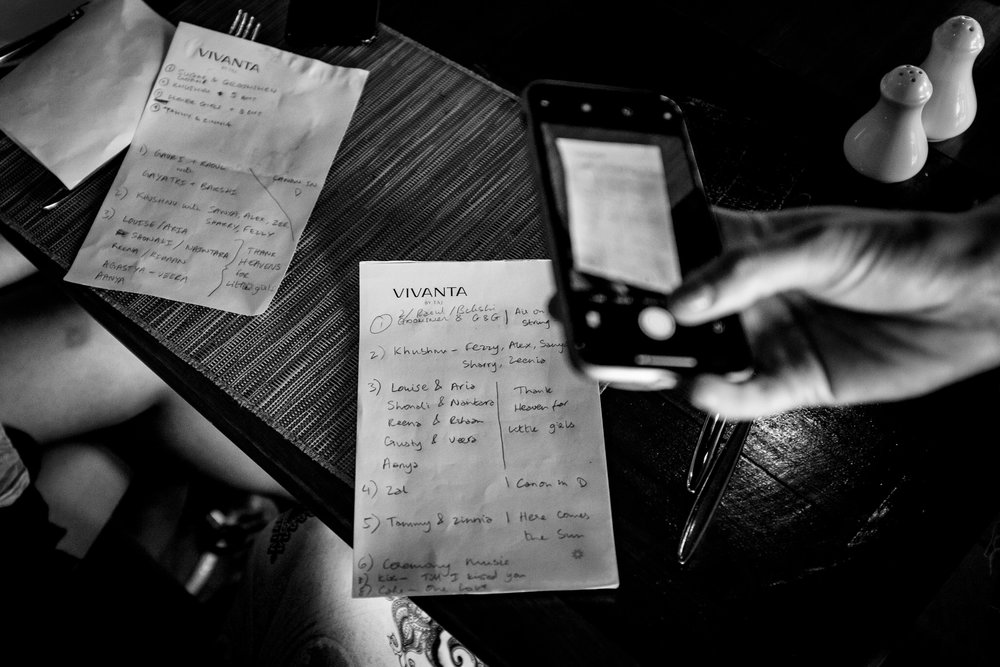 VIVANTA
BY TAJ
① SUGAR & GROOMSMEN
② KHUSHNU + 5 BUT
③ FLOWER GIRLS + 5 BUT
④ TAMMY & ZINNIA
1) GAURI + RAOUL
with
GAYATRI + BAKSHI
CANON IN
D
2) KHUSHNU with SANYA, ALEX, ZEE
SHARRY, FEZZY
3) LOUISE/ARIA
SHONALI / NAINTARA
REENA / RUHAAN
AGASTYA - VEERA
AANYA
THANK
HEAVENS
for
little girls
VIVANTA
BY TAJ
2/ Raoul / Bakshi
① Groomsmen & G&G | Air on
String
2) Khushnu - Fezzy, Alex, Sanya
Sharry, Zeenia
3) Louise & Aria
Shonali & Naintara
Reena & Ruhaan
Gusty & Veera
Aanya
Thank
Heaven for
little girls
4) Zal | Canon in D
5) Tammy & Zinnia | Here comes
the Sun
6) Ceremony Music
7) Kiss - Till I kissed you
8) - One Love